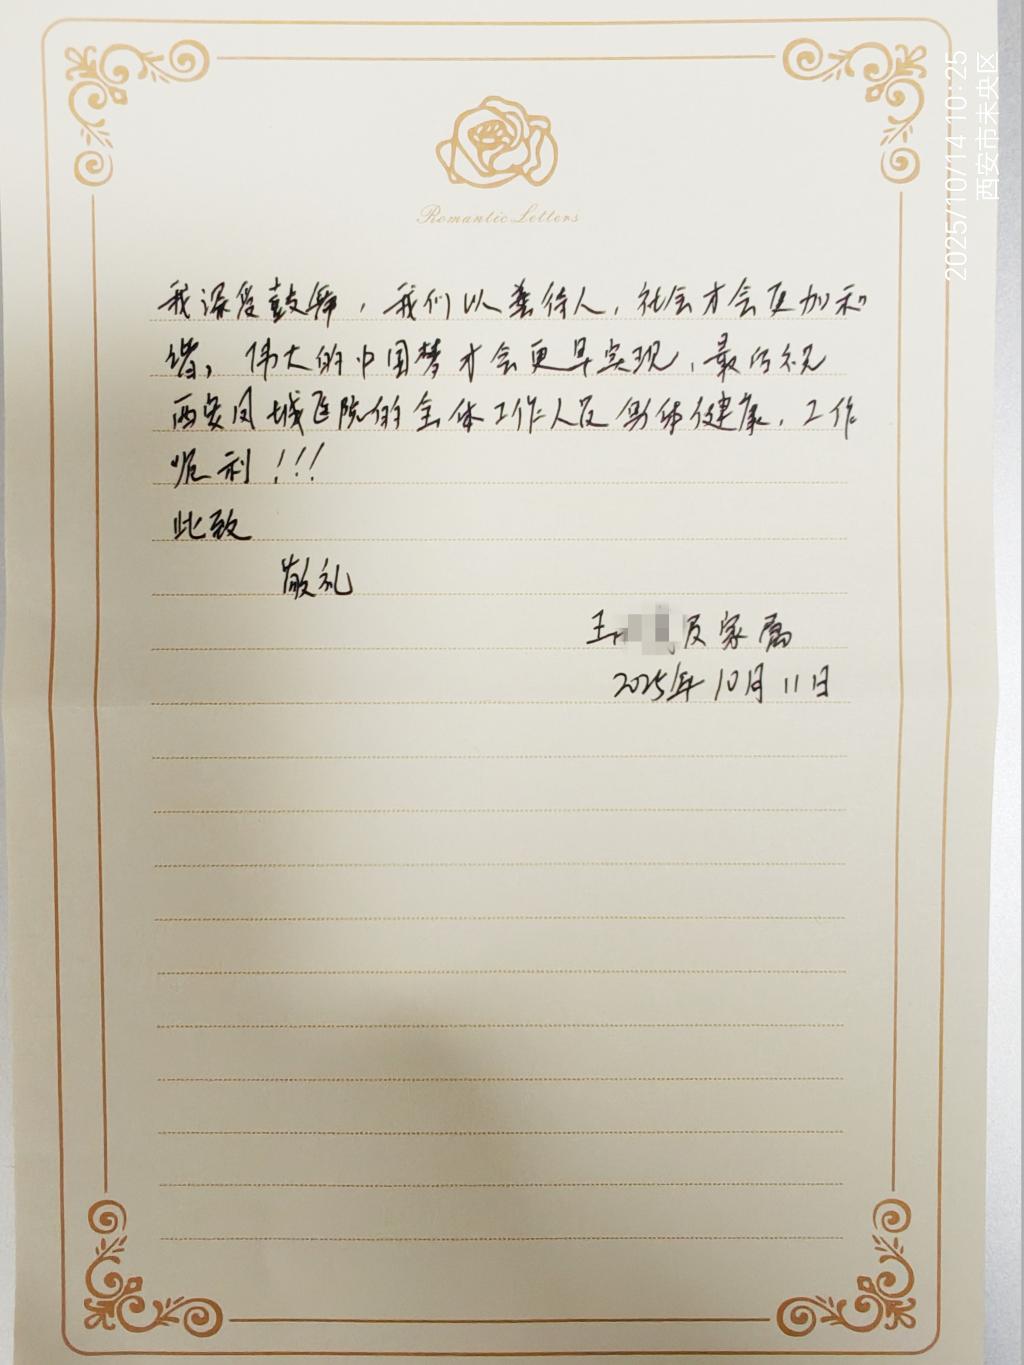 Romantic Letters
我深受鼓舞，我们以善待人，社会才会更加和
谐，伟大的中国梦才会更早实现，最后祝
西安凤城医院的全体工作人员身体健康，工作
顺利！！！
此致
敬礼
王 及家属
2025年10月11日
2025/10/14 10:25
西安市未央区